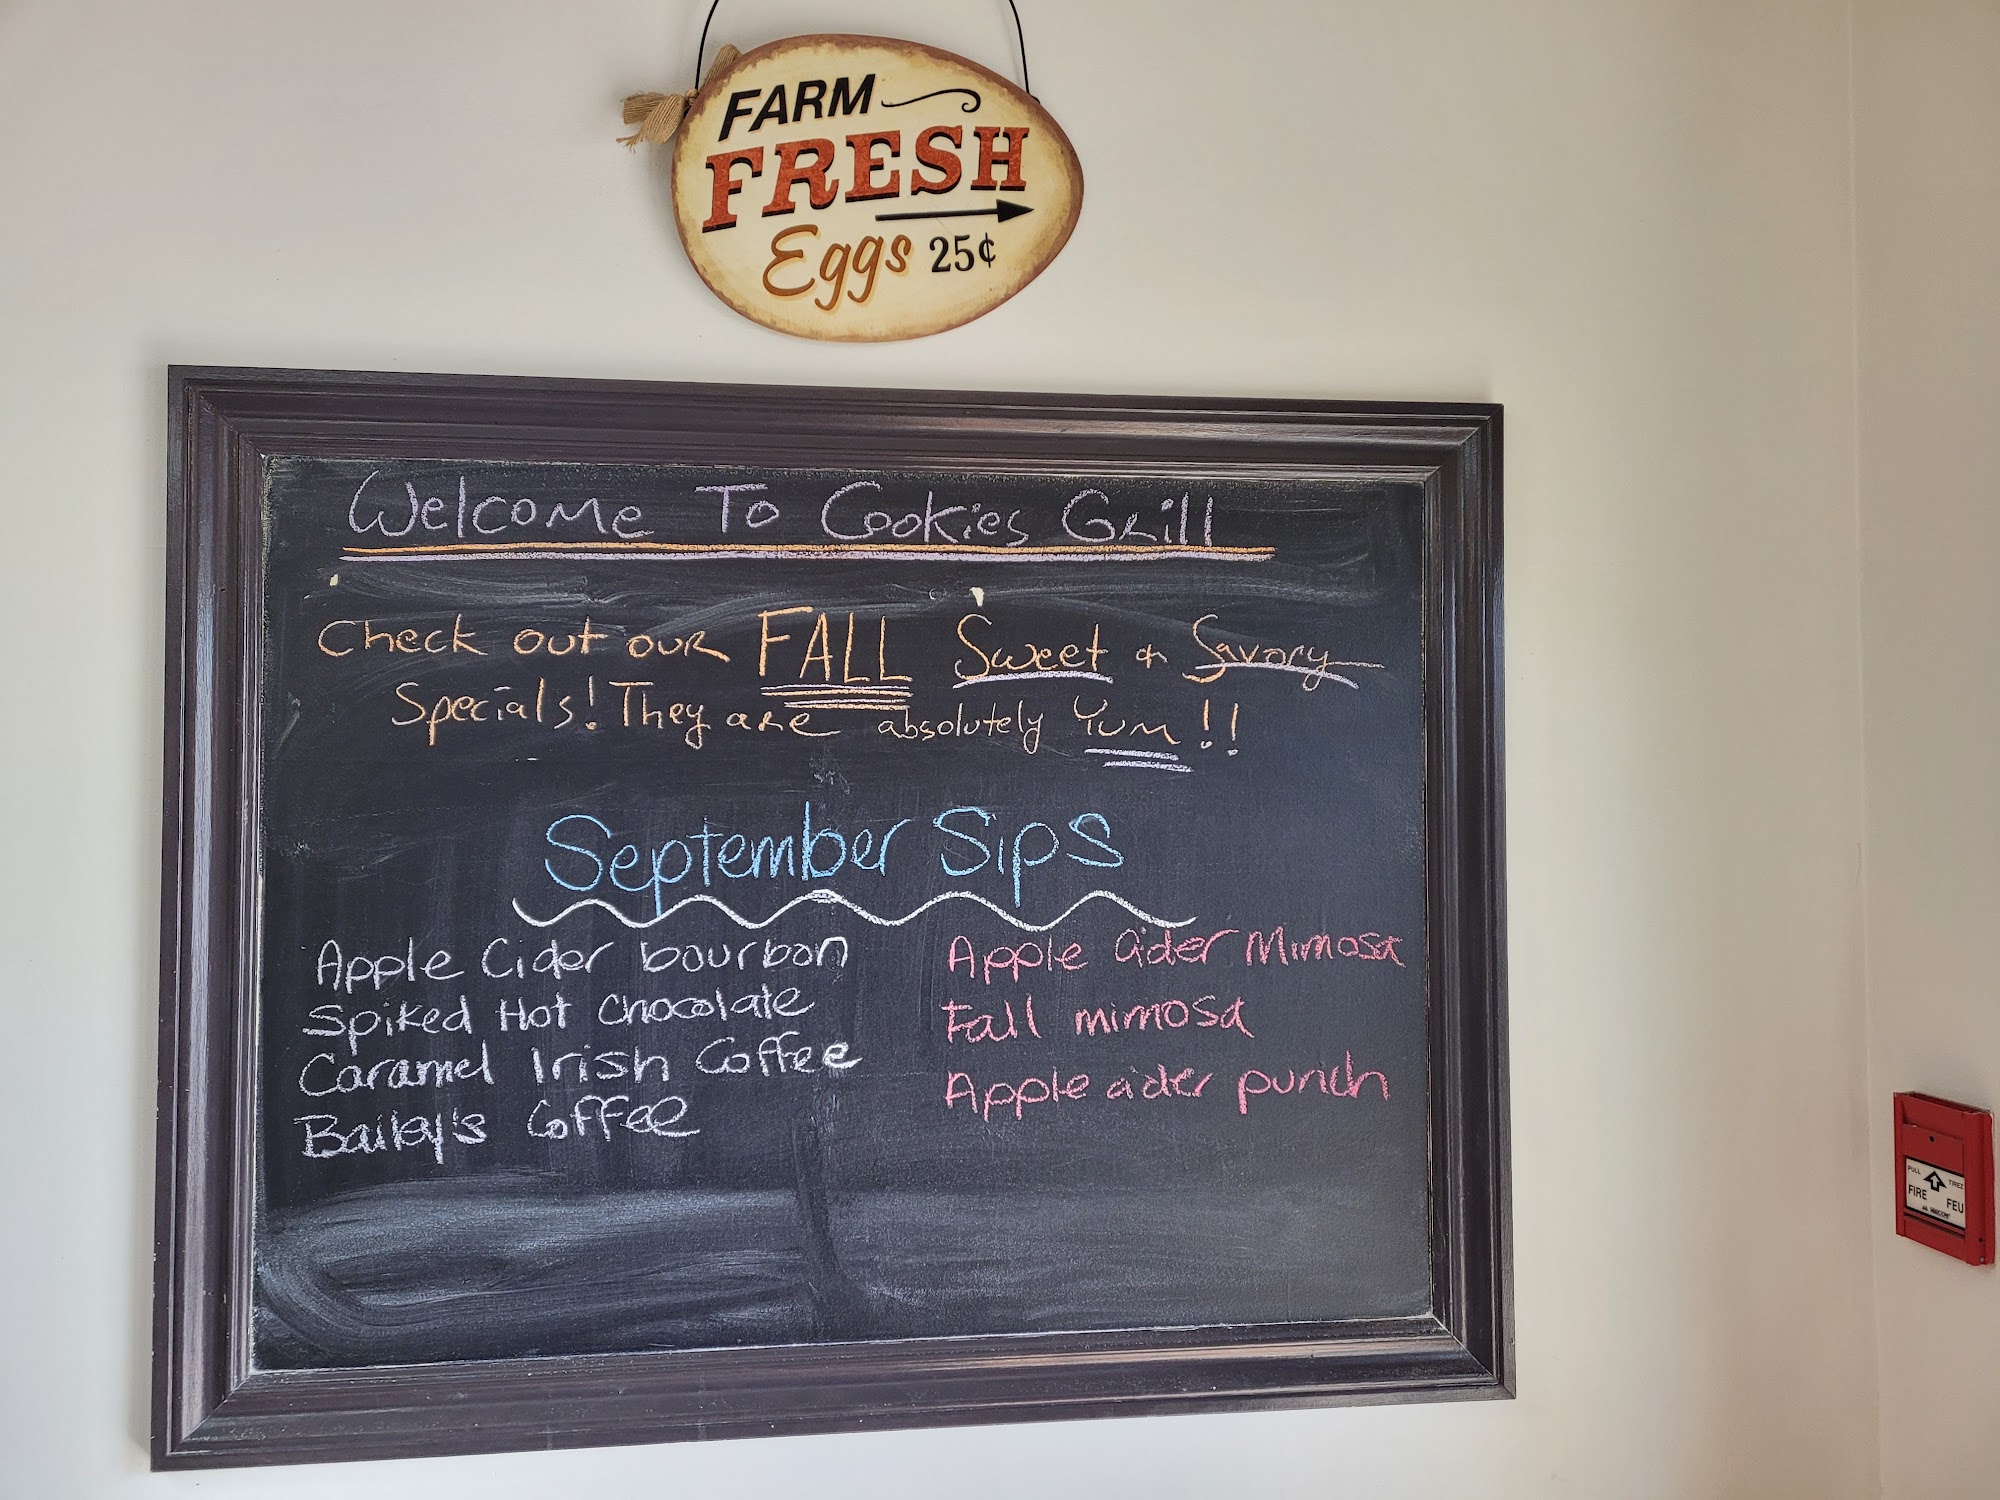 FARM
FRESH
Eggs 25¢
Welcome To Cookies Grill
Check out our FALL Sweet & Savory
Specials! They are absolutely Yum!!
September Sips
Apple Cider bourbon
Spiked Hot Chocolate
Caramel Irish Coffee
Bailey's Coffee
Apple Cider Mimosa
Fall mimosa
Apple cider punch
PULL TIREZ
FIRE FEU